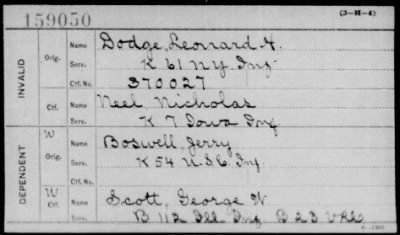 159050
(3-H-4)
INVALID
Orig.
Name Dodge, Leonard H.
Serv. K 61 N.Y. Inf
Ctf. No. 370027
Ctf.
Name Neel, Nicholas
Serv. K 7 Iowa Inf
DEPENDENT
W
Orig.
Name Boswell, Jerry
Serv. K 54 U.S.C. Inf.
Ctf. No.
W
Ctf.
Name Scott, George W.
Serv. B 112 Ill. Inf B 23 VRC